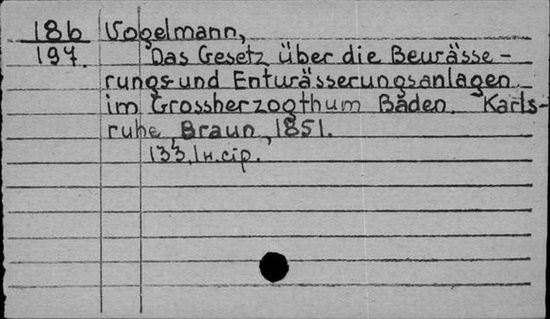 186 Vogelmann,
197. Das Gesetz über die Bewässe-
rungs- und Entwässerungsanlagen
im Grossherzogthum Baden. Karls-
ruhe, Braun, 1851.
133, 1H. cip.